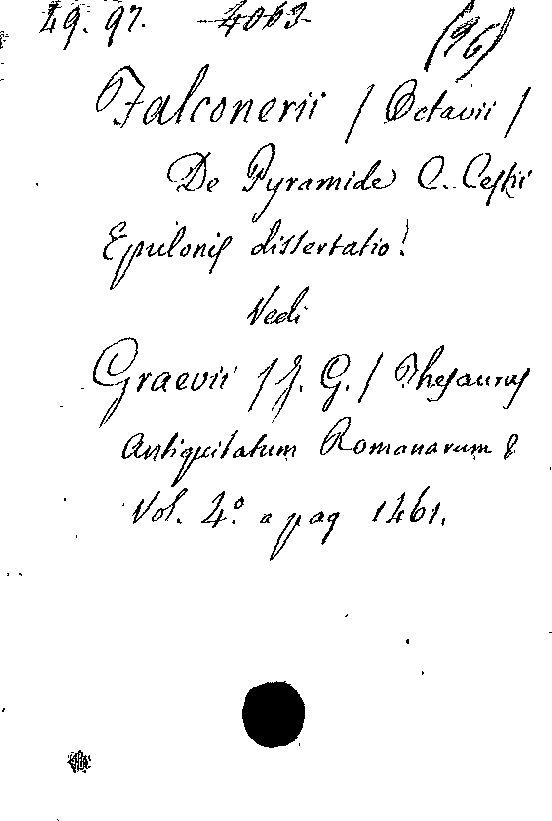 49. 97. 4063
(96)
Falconerii / Octavii /
De Pyramide C. Cestii
Epulonis dissertatio!
Vedi
Graevii / J. G. / Thesaurus
Antiquitatum Romanarum &
Vol. 4º a pag 1461.